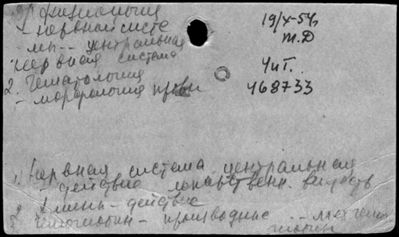 физиология
- нервная систе
ма - центральная
нервная система
2. Гематология
- морфология крови
19/X-54
т.Д
Чит.
468733
1. Нервная система центральная
действие лекарственн. веществ
2. - действие
3. - производные